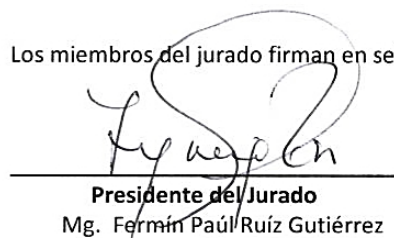 Los miembros del jurado firman en se
Presidente del Jurado
Mg. Fermín Paúl Ruíz Gutiérrez